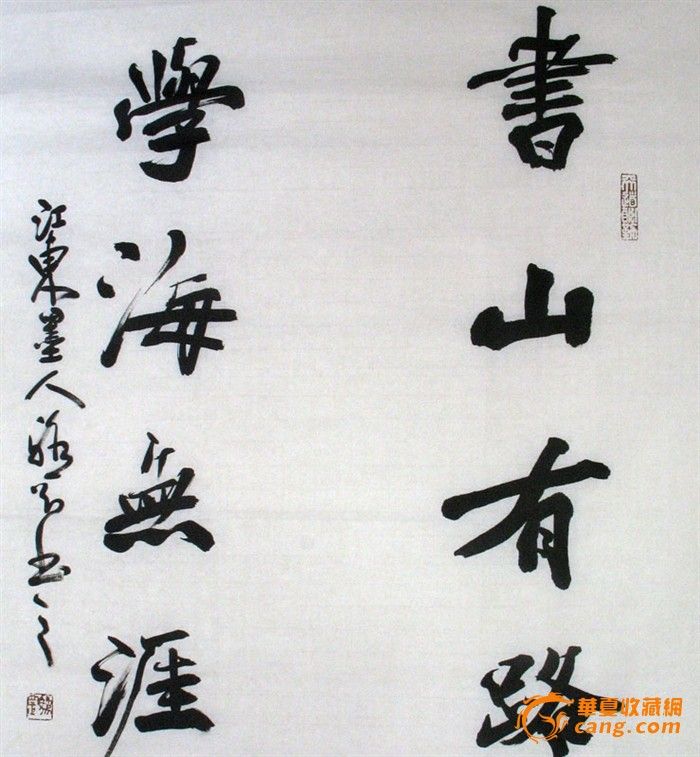 書山有路
學海無涯
江東墨人
書之
華夏收藏網
cang.com